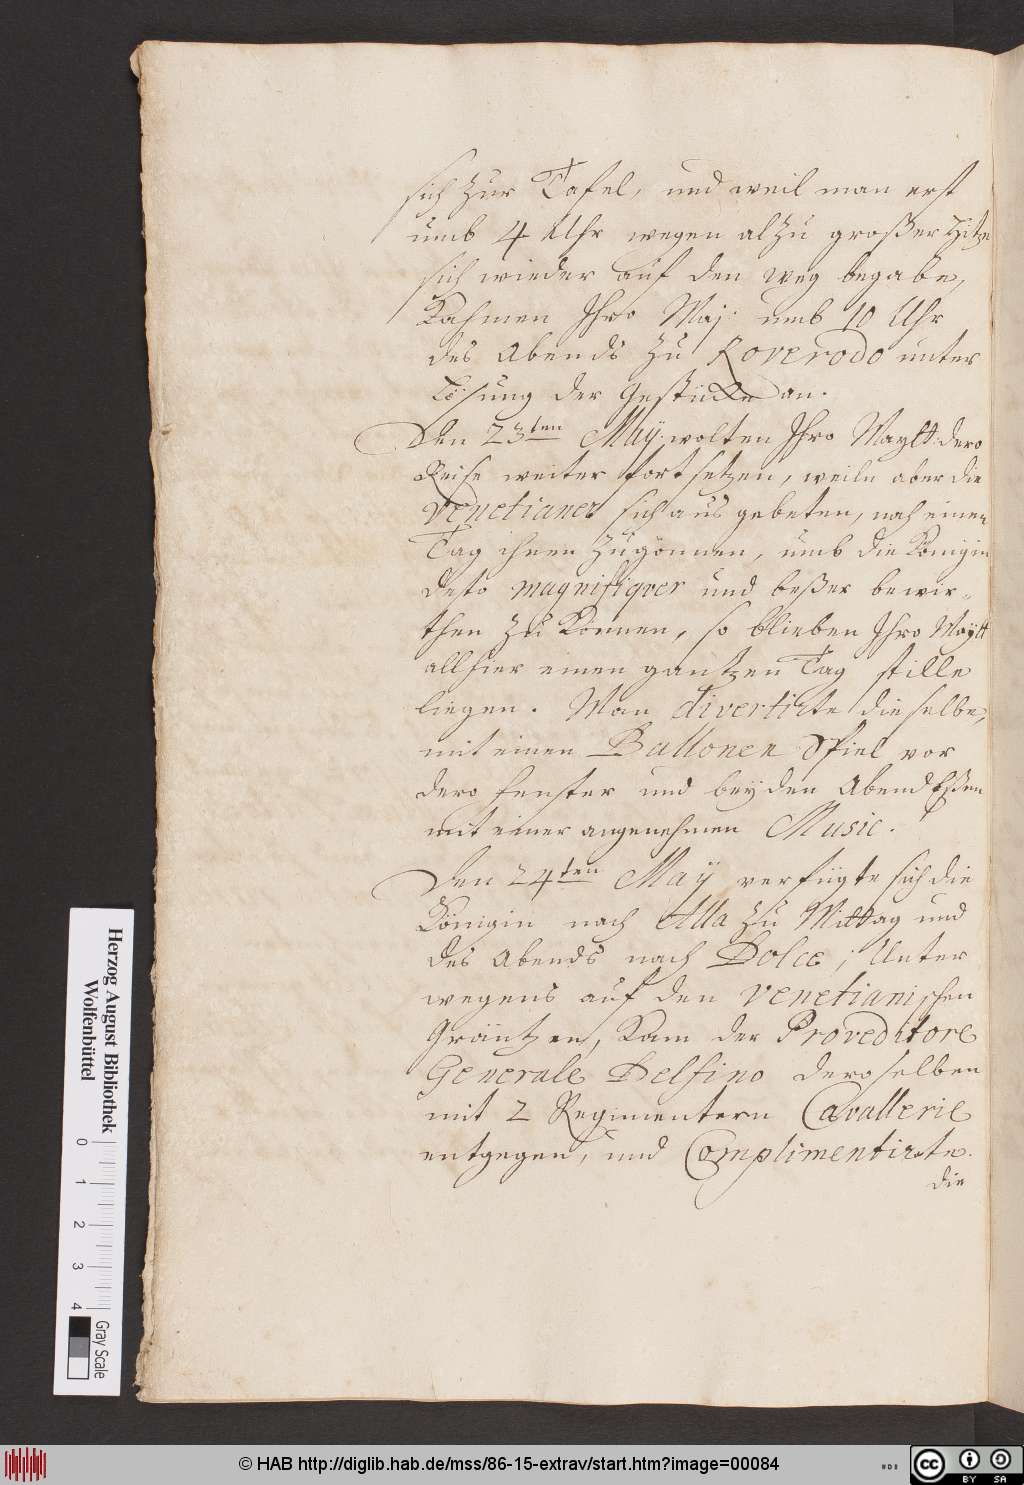 sich zur Tafel, und weil man erst
umb 4 Uhr wegen alzu großer Hitze
sich wieder auf den weg begabe,
Kahmen Ihro Maj: umb 10 Uhr
des Abends zu Roverodo unter
Lösung der Gestücke an.
Den 23ten May wolten Ihro Maytt. dero
Reise weiter fort setzen, weiln aber die
Venetianer sich aus gebeten, noch einen
Tag ihnen zugönnen, umb die Königin
desto magnifiqver und beßer bewir-
then zu Können, so blieben Ihro Maytt
allhier einen gantzen Tag stille
liegen. Man divertirte dieselbe,
mit einen Ballonen Spiel vor
dero fenster und bey den Abend Eßen
mit einer angenehmen Music.
Den 24ten Maÿ verfügte sich die
Königin nach Alla zu Mittag und
des Abends nach Dolce; Unter
wegens auf den Venetianischen
Gräntzen, Kam der Proveditore
Generale Delfino deroselben
mit 2 Regimentern Cavallerie
entgegen, und Complimentirte.
die
Herzog August Bibliothek
Wolfenbüttel
0 1 2 3 4
Gray Scale
© HAB http://diglib.hab.de/mss/86-15-extrav/start.htm?image=00084
cc BY SA